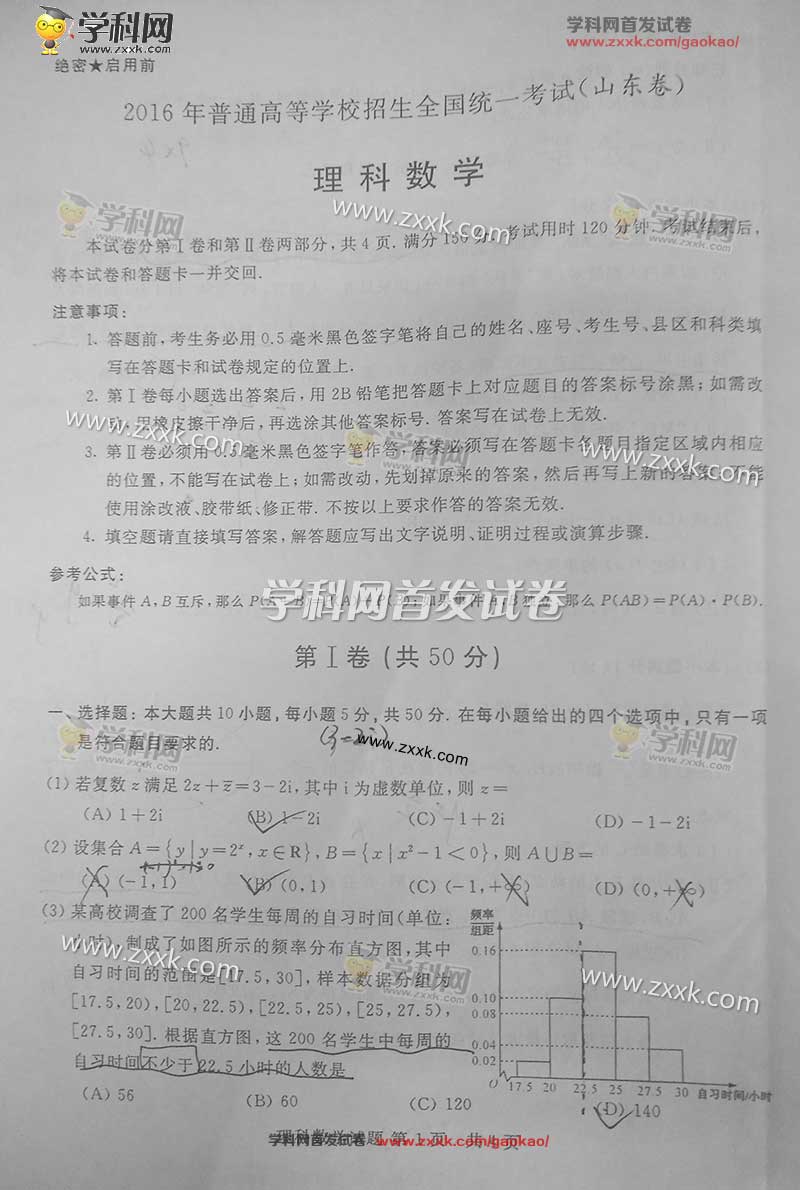 学科网
www.zxxk.com
学科网首发试卷
www.zxxk.com/gaokao/
绝密★启用前
2016年普通高等学校招生全国统一考试(山东卷)
理科数学
学科网
www.zxxk.com
学科网
本试卷分第Ⅰ卷和第Ⅱ卷两部分,共4页.满分150分.考试用时120分钟.考试结束后,
将本试卷和答题卡一并交回.
注意事项:
1. 答题前,考生务必用0.5毫米黑色签字笔将自己的姓名、座号、考生号、县区和科类填
写在答题卡和试卷规定的位置上.
2. 第Ⅰ卷每小题选出答案后,用2B铅笔把答题卡上对应题目的答案标号涂黑;如需改
用橡皮擦干净后,再选涂其他答案标号.答案写在试卷上无效.
www.zxxk.com
3. 第Ⅱ卷必须用0.5毫米黑色签字笔作答,答案必须写在答题卡各题目指定区域内相应
学科网
www.zxxk.com
的位置,不能写在试卷上;如需改动,先划掉原来的答案,然后再写上新的答案;不能
使用涂改液、胶带纸、修正带.不按以上要求作答的答案无效.
4. 填空题请直接填写答案,解答题应写出文字说明、证明过程或演算步骤.
参考公式:
如果事件A,B互斥,那么P(A+B)=P(A)+P(B);如果事件A,B独立,那么P(AB)=P(A)·P(B).
学科网首发试卷
第Ⅰ卷(共50分)
一、选择题:本大题共10小题,每小题5分,共50分.在每小题给出的四个选项中,只有一项
是符合题目要求的.
(3-2i)
www.zxxk.com
学科网
学科网
(1)若复数z满足2z+z̅=3-2i,其中i为虚数单位,则z=
(A) 1+2i (B) 1-2i (C) -1+2i (D) -1-2i
(2)设集合A={y|y=2ˣ,x∈R},B={x|x²-1<0},则A∪B=
(A) (-1,1) (B) (0,1) (C) (-1,+∞) (D) (0,+∞)
(3)某高校调查了200名学生每周的自习时间(单位:
小时),制成了如图所示的频率分布直方图,其中
自习时间的范围是[17.5,30],样本数据分组为
[17.5,20),[20,22.5),[22.5,25),[25,27.5),
[27.5,30].根据直方图,这200名学生中每周的
自习时间不少于22.5小时的人数是
www.zxxk.com
学科网
www.zxxk.com
频率
组距
0.16
0.10
0.08
0.04
0.02
O 17.5 20 22.5 25 27.5 30 自习时间/小时
(A) 56 (B) 60 (C) 120 (D) 140
理科数学试题 第1页 共4页
学科网首发试卷 www.zxxk.com/gaokao/